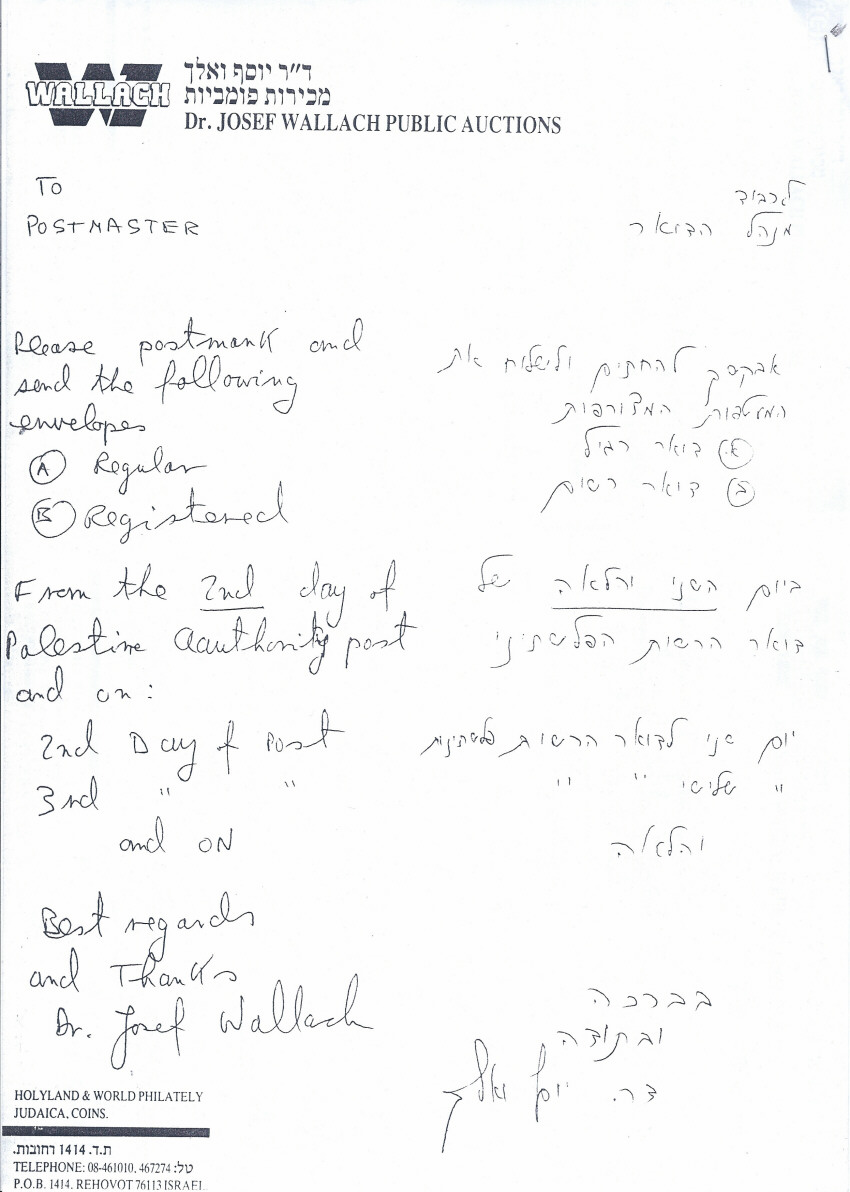 WALLACH
ד"ר יוסף ואלך
מכירות פומביות
Dr. JOSEF WALLACH PUBLIC AUCTIONS
To
POSTMASTER
לכבוד
מנהל הדואר
Please postmark and
send the following
envelopes
(A) Regular
(B) Registered
אבקשך להחתים ולשלוח את
המעטפות המצורפות
(א) דואר רגיל
(ב) דואר רשום
From the 2nd day of
Palestine Aauthority post
and on:
2nd Day of Post
3rd " "
and ON
ביום השני והלאה של
דואר הרשות הפלשתיני
יום שני לדואר הרשות פלשתינית
" שלישי " "
והלאה
Best regards
and Thanks
Dr. Josef Wallach
בברכה
ובתודה
דר. יוסף ואלך
HOLYLAND & WORLD PHILATELY
JUDAICA, COINS.
ת.ד. 1414 רחובות.
TELEPHONE: 08-461010, 467274 :טל
P.O.B. 1414, REHOVOT 76113 ISRAEL.